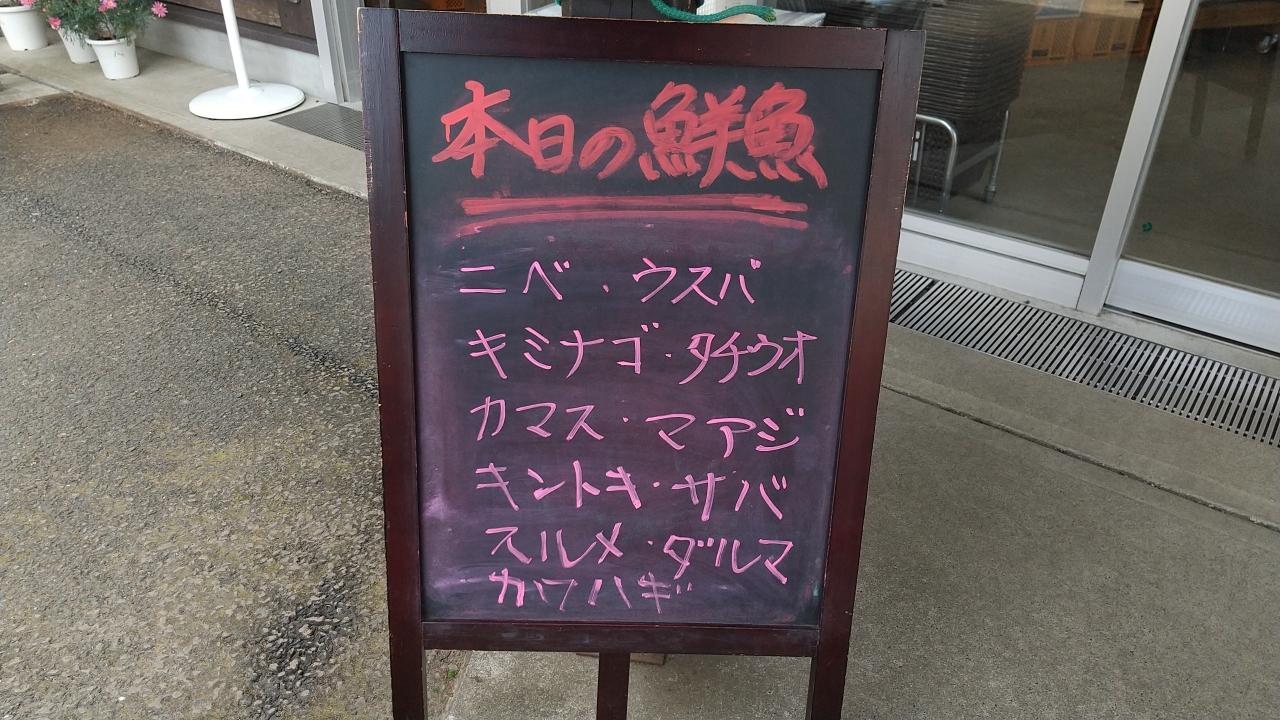 本日の鮮魚
ニベ・ウスバ
キミナゴ・タチウオ
カマス・マアジ
キントキ・サバ
スルメ・ダルマ
カワハギ